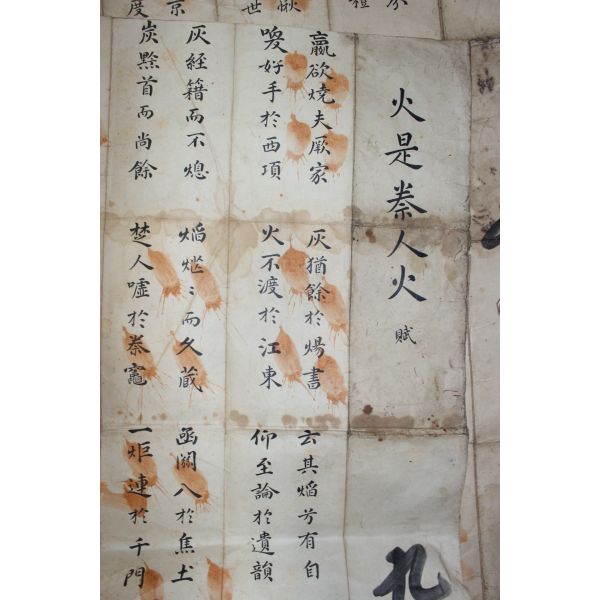 火是秦人火 賦
嬴欲燒夫厥家
喚好手於西項
灰猶餘於煬書
火不渡於江東
云其焰兮有自
仰至論於遺韻
灰經籍而不熄
炭黔首而尚餘
焰〻而久藏
楚人噓於秦竈
函關入於焦土
一炬連於千門
度
京
世
孔